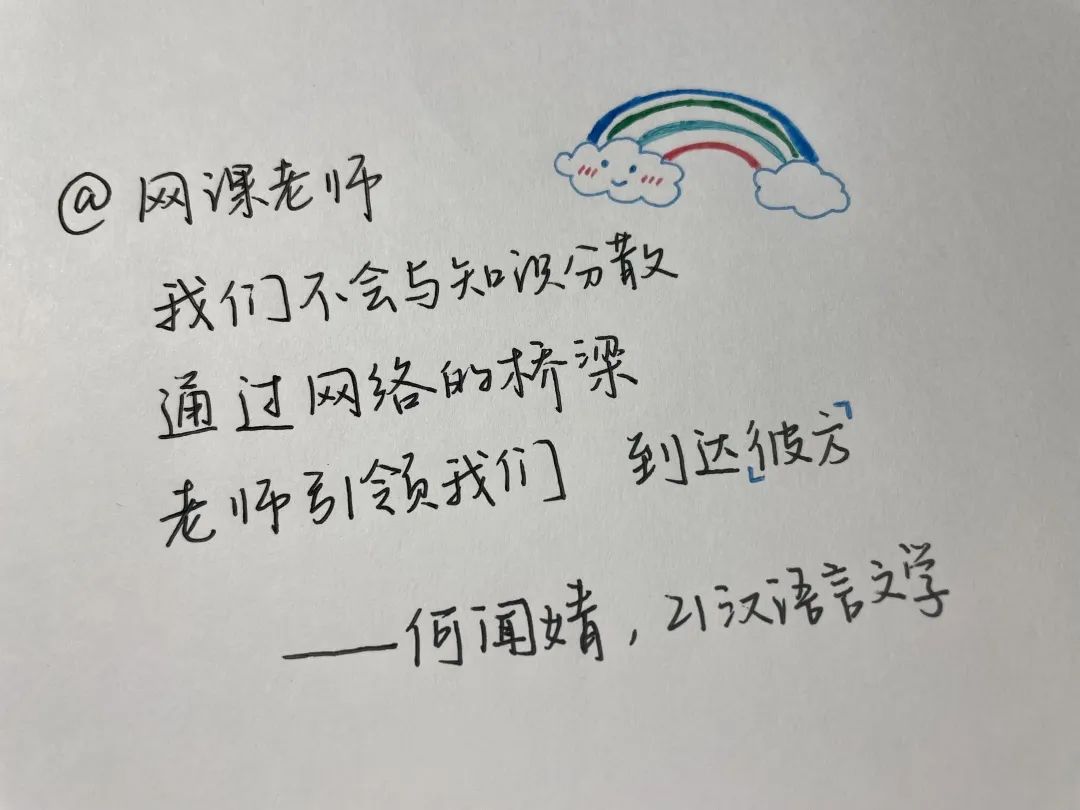 @网课老师
我们不会与知识分散
通过网络的桥梁
老师引领我们 到达「彼方」
——何闻婧，21汉语言文学